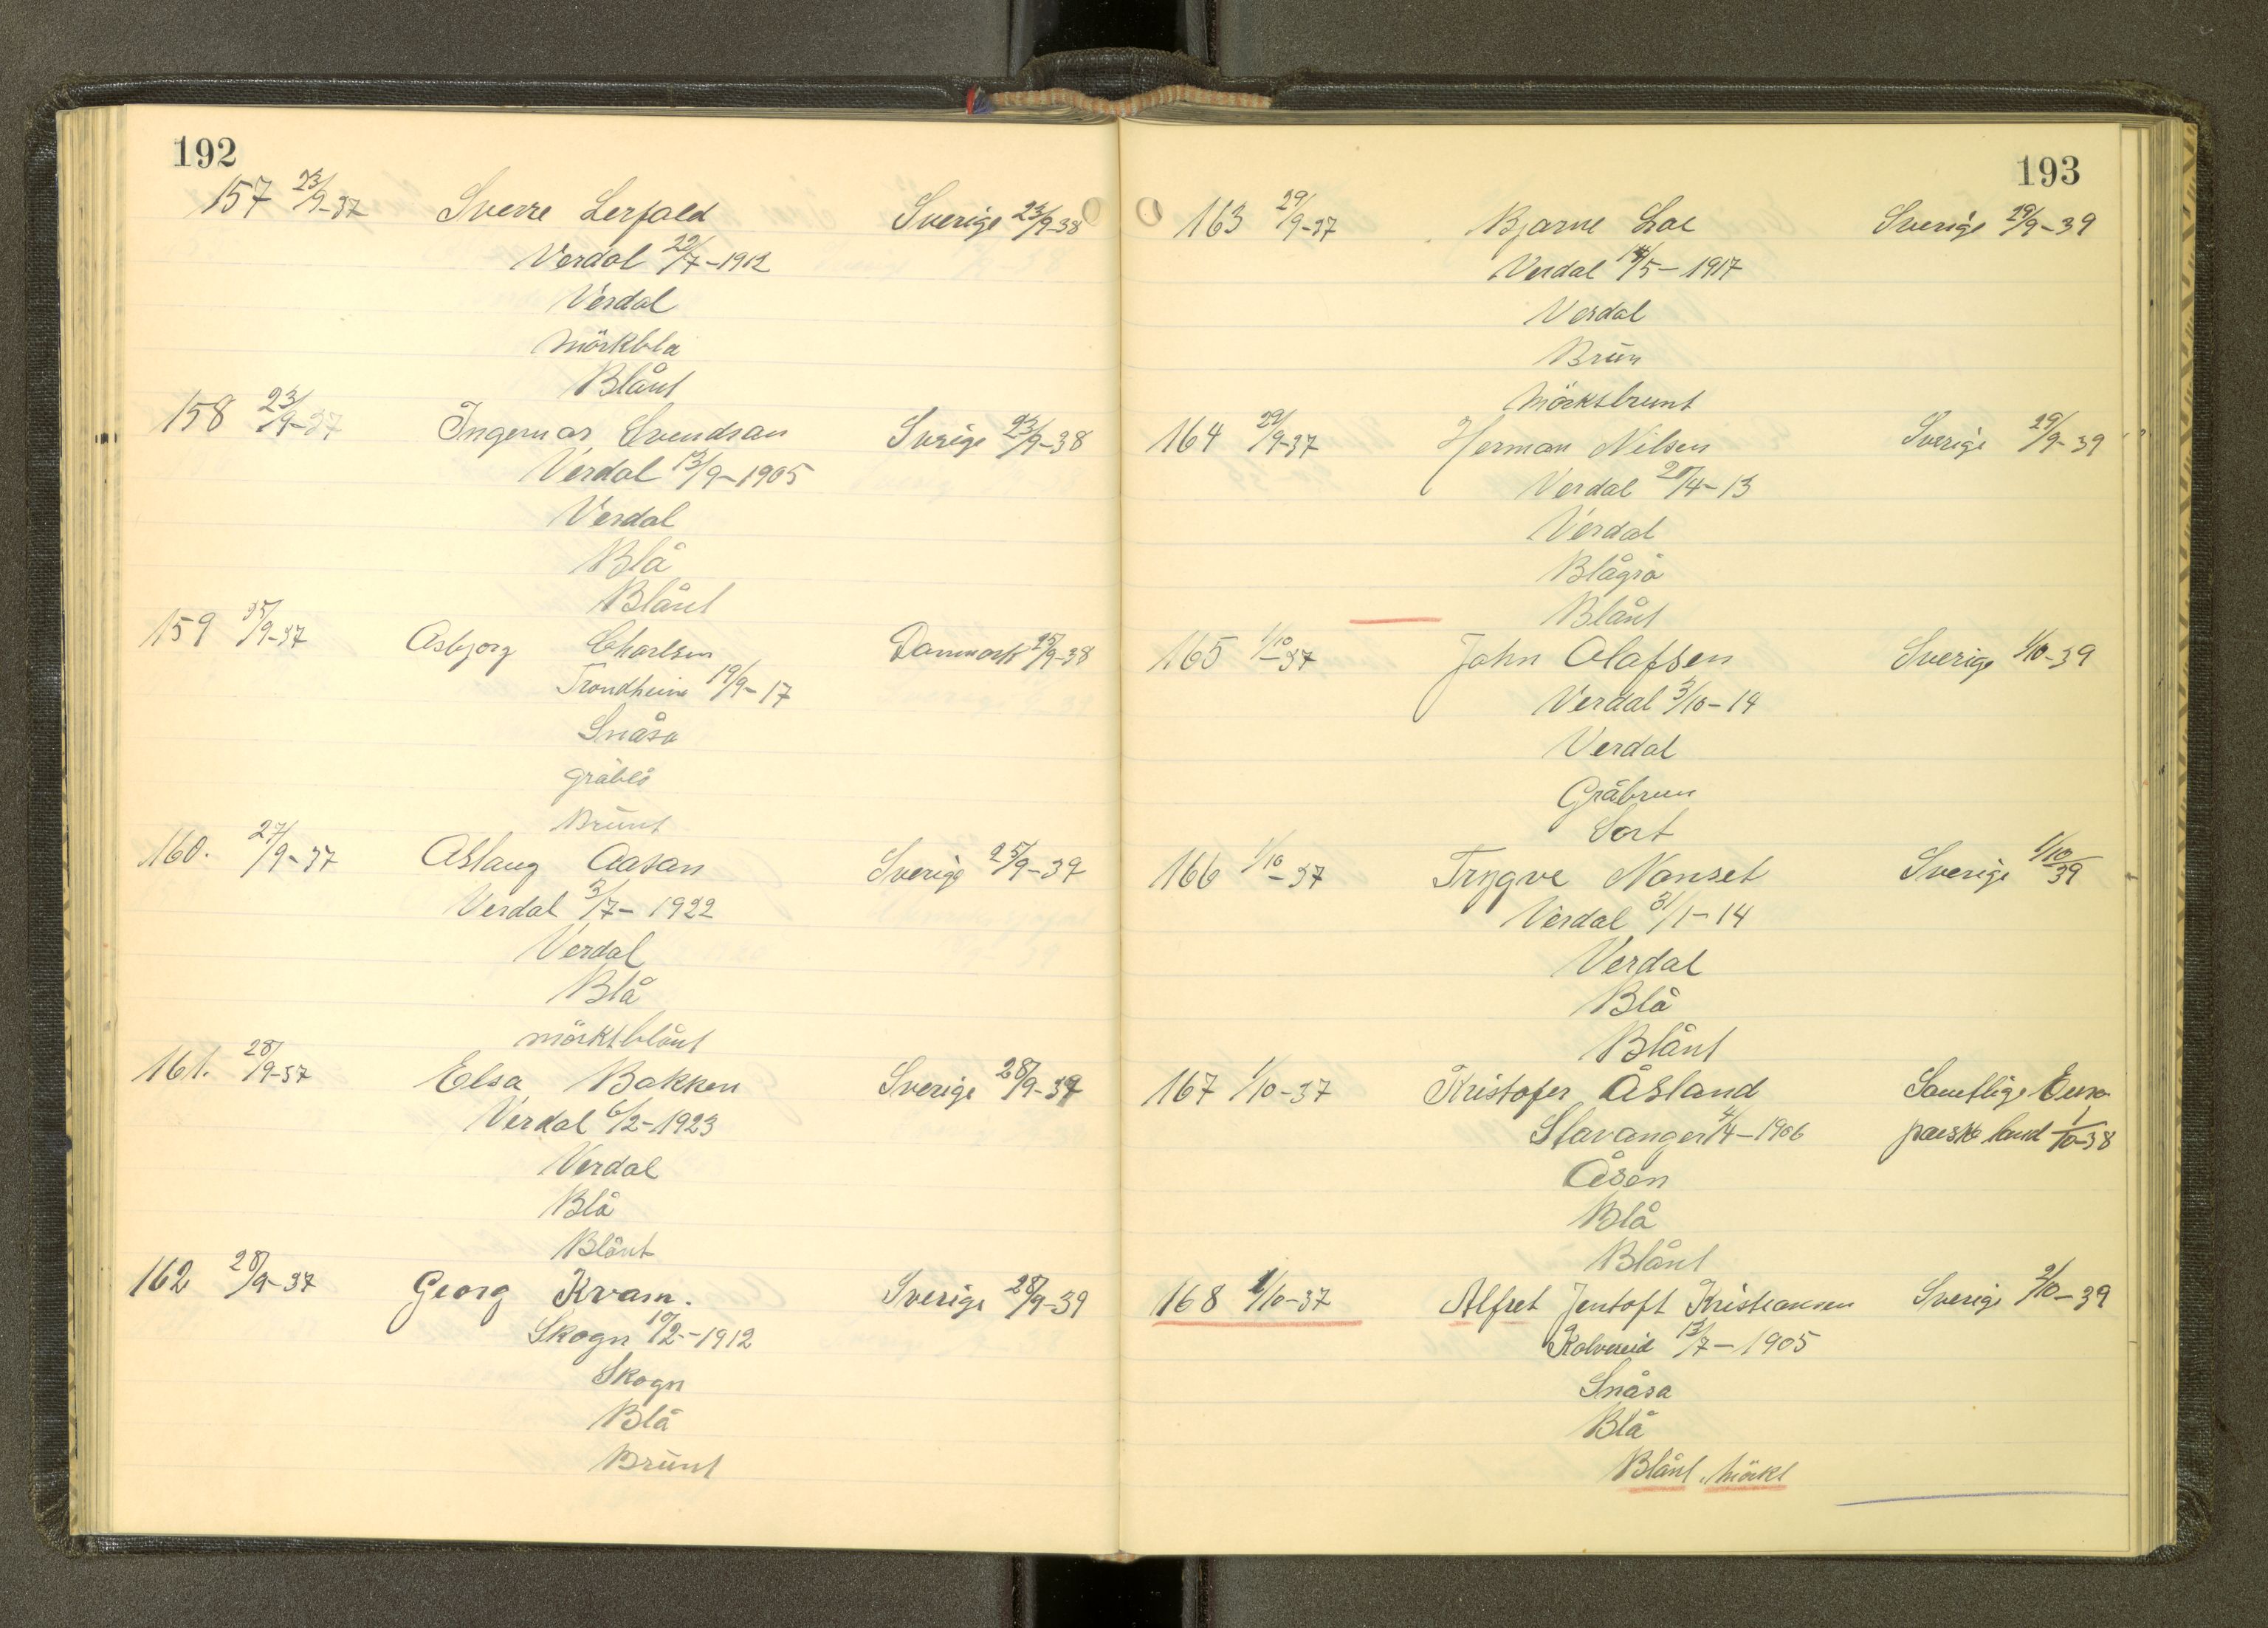 192
157 23/9-37 Sverre Lerfald Sverige 23/9-38
Verdal 22/7-1912
Verdal
Mörkblå
Blånt
158 23/9-37 Ingemar Svendsan Sverige 23/9-38
Verdal 13/9-1905
Verdal
Blå
Blånt
159 25/9-37 Asbjorg Charlsen Danmark 25/9-38
Trondheim 19/9-17
Snåsa
gråblå
Brunt
160. 27/9-37 Aslaug Aasan Sverige 25/9-39
Verdal 3/7-1922
Verdal
Blå
mörktblånt
161. 28/9-37 Elsa Bakken Sverige 28/9-39
Verdal 6/2-1923
Verdal
Blå
Blånt
162 28/9-37 Georg Kvam. Sverige 28/9-39
Skogn 10/2-1912
Skogn
Blå
Brunt
193
163 29/9-37 Bjarne Lae Sverige 29/9-39
Verdal /5-1917
Verdal
Brun
Mörktbrunt
164 29/9-37 Herman Nilsen Sverige 29/9-39
Verdal 20/4-13
Verdal
Blågrå
Blånt
165 1/10-37 John Olafsen Sverige 1/10-39
Verdal 3/10-14
Verdal
Gråbrun
Sort
166 1/10-37 Trygve Nonset Sverige 1/10 39
Verdal 31/1-14
Verdal
Blå
Blånt
167 1/10-37 Kristofer Åsland Samtlige Euro-
Stavanger 4/4-1906 paeiske land 1/10-38
Åsen
Blå
Blånt
168 1/10-37 Alfret Jentoft Kristiansen Sverige 2/10-39
Kolvereid 13/7-1905
Snåsa
Blå
Blånt, mörkt